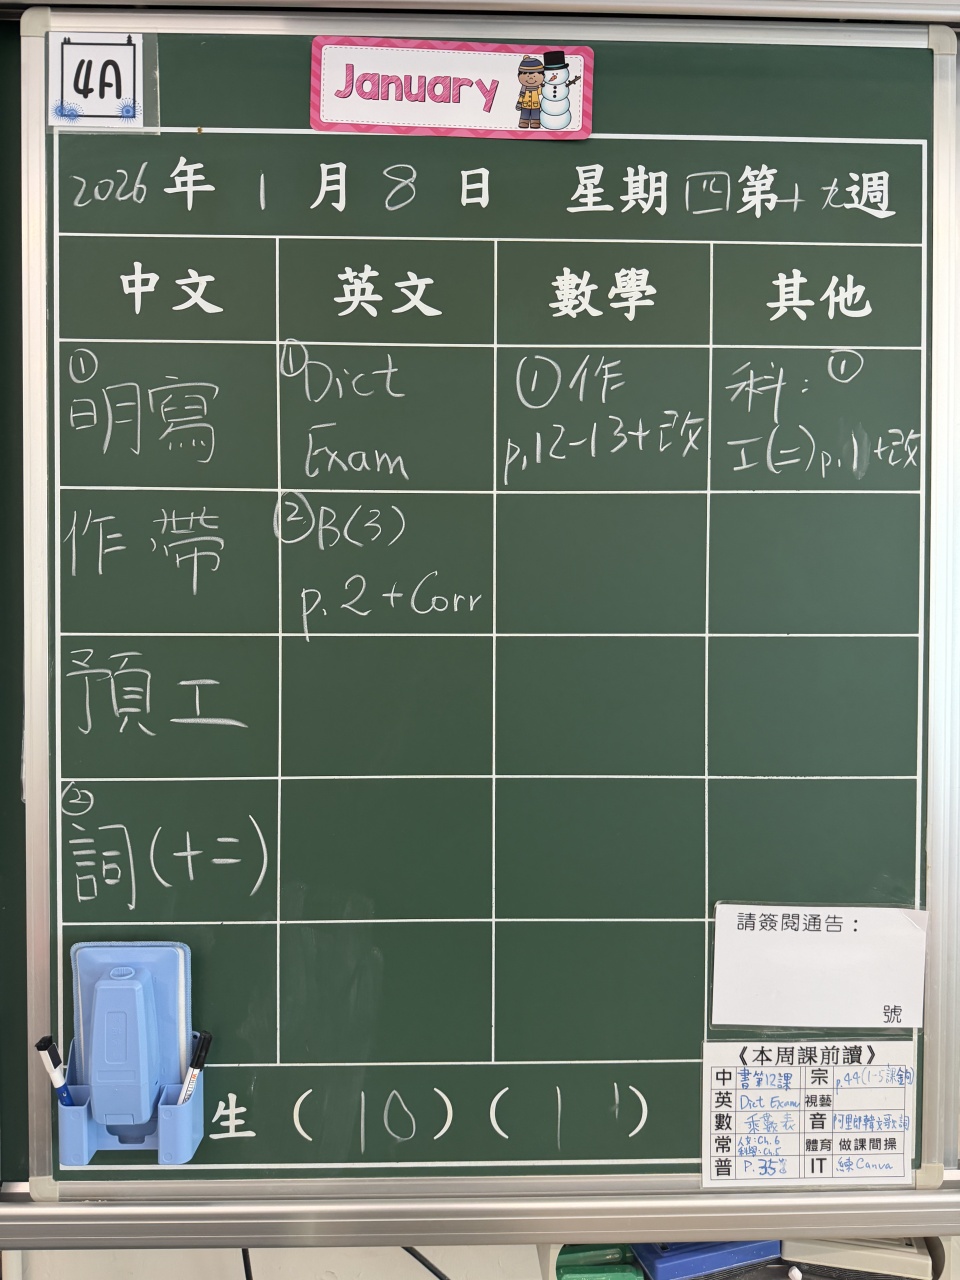 4A
January
2026年1月8日 星期四第十九週
中文 英文 數學 其他
① 明寫
作帶
預工
② 詞(十二)
① Dict
Exam
② B(3)
p.2+Corr
① 作
p.12-13+改
科: ①
工(二)p.1+改
請簽閱通告：
號
生 (10) (11)
《本周課前讀》
中 書第12課 宗 p.44(1-5課金句)
英 Dict Exam 視藝
數 乘數表 音 阿里郎韓文歌詞
常 人文:Ch.6 科學:Ch.5 體育 做課間操
普 P.35 IT 練Canva